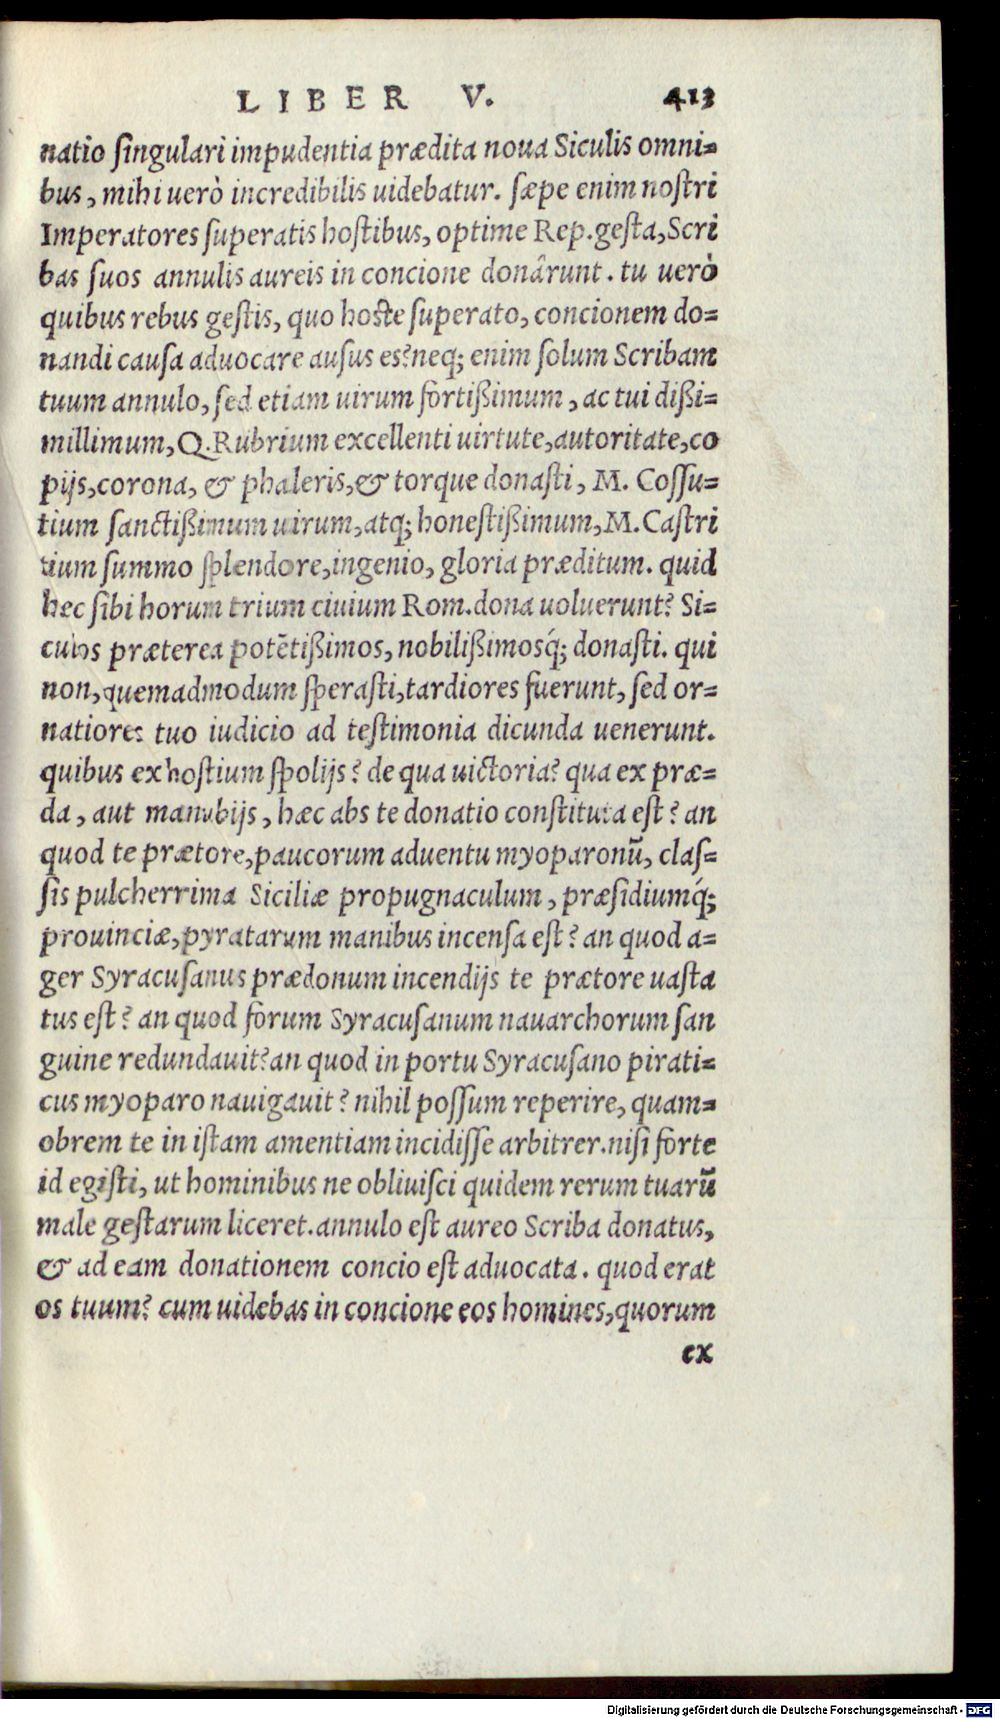 LIBER V. 413
natio ſingulari impudentia prædita noua Siculis omni=
bus, mihi uerò incredibilis uidebatur. ſæpe enim noſtri
Imperatores ſuperatis hoſtibus, optime Rep. geſta, Scri
bas ſuos annulis aureis in concione donârunt. tu uerò
quibus rebus geſtis, quo hoſte ſuperato, concionem do=
nandi cauſa aduocare auſus es? neq; enim ſolum Scribam
tuum annulo, ſed etiam uirum fortißimum, ac tui dißi=
millimum, Q. Rubrium excellenti uirtute, autoritate, co
pijs, corona, & phaleris, & torque donaſti, M. Coſſu=
tium ſanctißimum uirum, atq; honeſtißimum, M. Caſtri
tium ſummo ſplendore, ingenio, gloria præditum. quid
hec ſibi horum trium ciuium Rom. dona uoluerunt? Si=
culos præterea potẽtißimos, nobilißimosq́; donaſti. qui
non, quemadmodum ſperaſti, tardiores fuerunt, ſed or=
natiores tuo iudicio ad teſtimonia dicunda uenerunt.
quibus ex hoſtium ſpolijs? de qua uictoria? qua ex præ=
da, aut manubijs, hæc abs te donatio conſtituta eſt? an
quod te prætore, paucorum aduentu myoparonũ, claſ=
ſis pulcherrima Siciliæ propugnaculum, præſidiumq́;
prouinciæ, pyratarum manibus incenſa eſt? an quod a=
ger Syracuſanus prædonum incendijs te prætore uaſta
tus eſt? an quod forum Syracuſanum nauarchorum ſan
guine redundauit? an quod in portu Syracuſano pirati=
cus myoparo nauigauit? nihil poſſum reperire, quam=
obrem te in iſtam amentiam incidiſſe arbitrer. niſi forte
id egiſti, ut hominibus ne obliuiſci quidem rerum tuarũ
male geſtarum liceret. annulo eſt aureo Scriba donatus,
& ad eam donationem concio eſt aduocata. quod erat
os tuum? cum uidebas in concione eos homines, quorum
ex
Digitalisierung gefördert durch die Deutsche Forschungsgemeinschaft - DFG